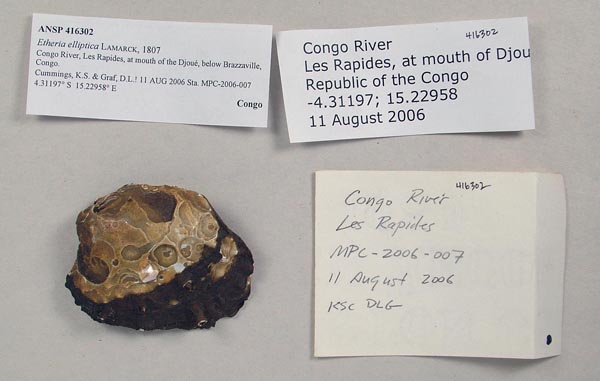 ANSP 416302
Etheria elliptica LAMARCK, 1807
Congo River, Les Rapides, at mouth of the Djoué, below Brazzaville,
Congo.
Cummings, K.S. & Graf, D.L.! 11 AUG 2006 Sta. MPC-2006-007
4.31197° S 15.22958° E
Congo
416302
Congo River
Les Rapides, at mouth of Djou
Republic of the Congo
-4.31197; 15.22958
11 August 2006
416302
Congo River
Les Rapides
MPC-2006-007
11 August 2006
KSC DLG